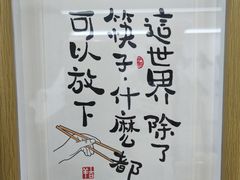 這世界除了
筷子·什麼都
可以放下